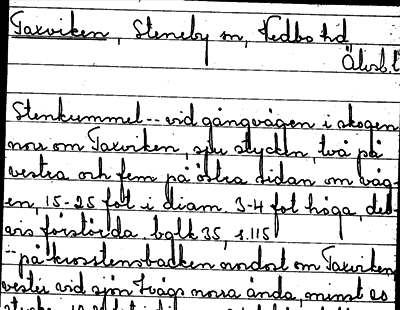 Taxviken, Steneby sn, Vedbo hd
Älvsb.l
Stenkummel -- vid gångvägen i skogen
norr om Taxviken, sju stycken, två på
vestra och fem på östra sidan om väg-
en, 15-25 fot i diam. 3-4 fot höga, del-
vis förstörda. bglk 35, s.115
-- på krosstensbacken nordost om Taxviken
vester vid sjön Ivägs norra ända, minst 20